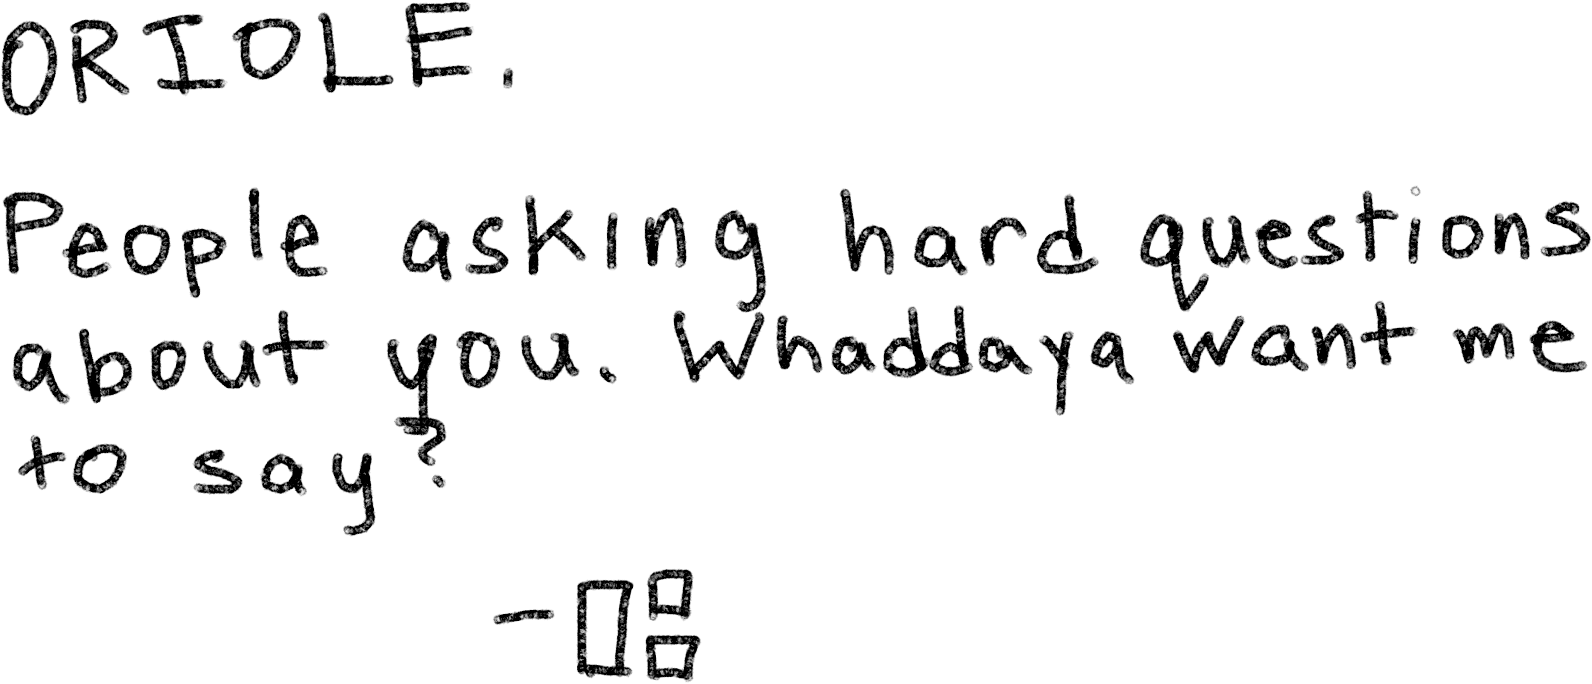 ORIOLE.
People asking hard questions
about you. Whaddaya want me
to say?